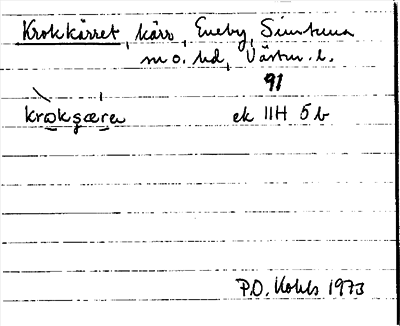 Krokkärret, kärr, Eneby, Simtuna
sn o. hd, Västm. l.
91
krokçæreɹ ek 11H 5b
P.O. Kohls 1973